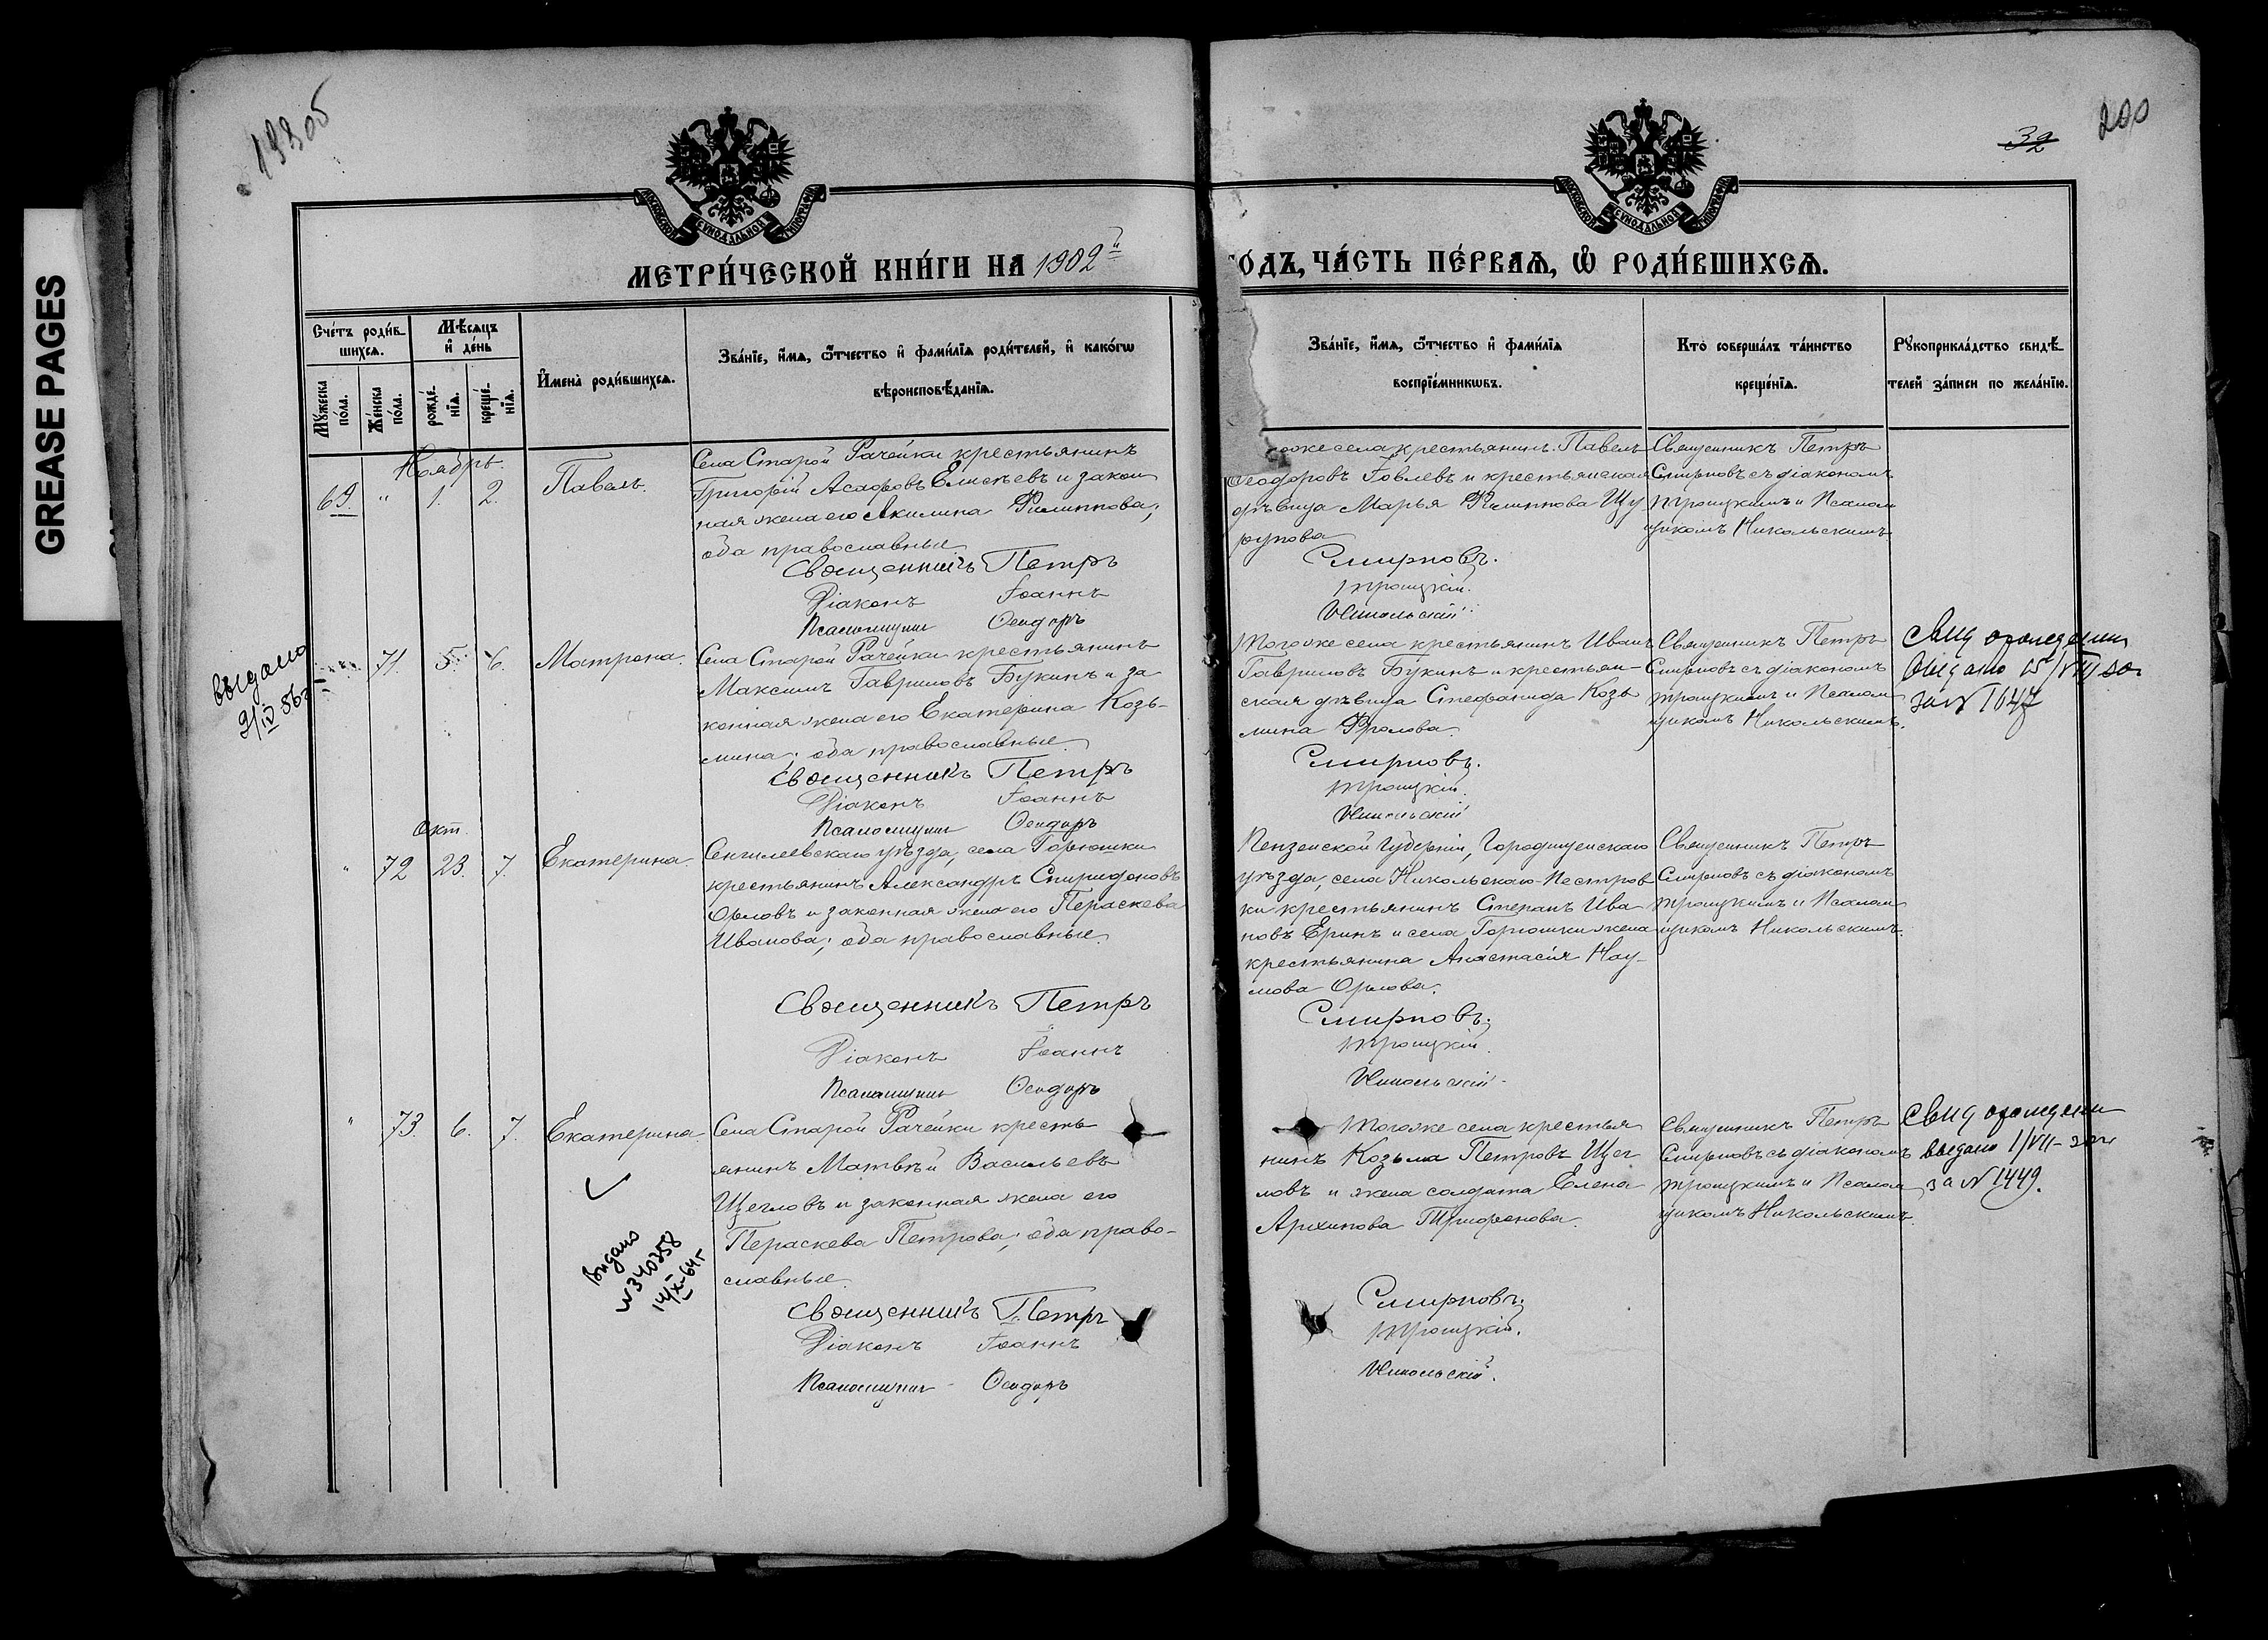 GREASE PAGES
19305
32
200
МОСКОВСКОЙ СѴНОДАЛЬНОЙ ТИПОГРАФІИ
МОСКОВСКОЙ СѴНОДАЛЬНОЙ ТИПОГРАФІИ
МЕТРИ́ЧЕСКОЙ КНИ́ГИ НА 1902й
ГОДЪ, ЧА́СТЬ ПЕ́РВАѦ, Ѡ РОДИ́ВШИХСѦ.
Сче́тъ роди́в-
шихсѧ.
Мѣ́сѧцъ
и҆ де́нь
Мꙋ́жеска
по́ла.
Же́нска
по́ла.
рожде́-
нїѧ.
креще́-
нїѧ.
И҆мена̀ роди́вшихсѧ.
Зва́нїе, и҆́мѧ, ѻ҆́тчество и҆ фами́лїѧ роди́телей, и҆ како́гѡ
вѣроисповѣ́данїѧ.
Зва́нїе, и҆́мѧ, ѻ҆́тчество и҆ фами́лїѧ
воспрїе́мникѡвъ.
Кто̀ соверша́лъ та́инство
креще́нїѧ.
Рꙋкоприкла́дство свидѣ́-
телей за́писи по жела́нїю.
Ноябрь.
69. " 1. 2.
Павелъ.
Села Старой Рачейки крестьянинъ
Григорій Асафовъ Елисѣевъ и закон
ная жена его Акилина Филиппова;
оба православные.
Священникъ Петръ
Діаконъ Іоаннъ
Псаломщикъ Ѳеодоръ
тоже села крестьянинъ Павелъ
Ѳеодоровъ Говлевъ и крестьянская
дѣвица Марья Филиппова Щу
рупова
Смирновъ.
Троицкій.
Никольскій.
Священникъ Петръ
Смирновъ съ діакономъ
Троицкимъ и Псалом
щикомъ Никольскимъ
выдано
9/IV 56г
71. 5. 6.
Матрона.
Села Старой Рачейки крестьянинъ
Максимъ Гавриловъ Букинъ и за
конная жена его Екатерина Козь-
мина; оба православные.
Священникъ Петръ
Діаконъ Іоаннъ
Псаломщикъ Ѳеодоръ
Тогоже села крестьянинъ Иванъ
Гавриловъ Букинъ и крестьян-
ская дѣвица Стефанида Козь
мина Фролова.
Смирновъ.
Троицкій.
Никольскій
Священникъ Петръ
Смирновъ съ діакономъ
Троицкимъ и Псалом
щикомъ Никольскимъ.
Свид о рождении
выдано 15/VIII
за N 1647
Окт.
" 72 23. 7.
Екатерина.
Сенгилеевскаго уѣзда, села Горюшки
крестьянинъ Александръ Спиридоновъ
Орловъ и законная жена его Пераскева
Иванова; оба православные.
Священникъ Петръ
Діаконъ Іоаннъ
Псаломщикъ Ѳеодоръ
Пензенской Губерніи, Городищенскаго
уѣзда, села Никольскаго-Пестров
ки крестьянинъ Степанъ Ива
новъ Еринъ и села Горюшки жена
крестьянина Анастасія Нау-
мова Орлова.
Смирновъ.
Троицкій.
Никольскій.
Священникъ Петръ
Смирновъ съ діакономъ
Троицкимъ и Псалом
щикомъ Никольскимъ.
" 73. 6. 7.
Екатерина.
Выдано
N 340358
14/X-64г
Села Старой Рачейки кресть-
янинъ Матвѣй Васильевъ
Щегловъ и законная жена его
Пераскева Петрова; оба право-
славные.
Священникъ Петръ
Діаконъ Іоаннъ
Псаломщикъ Ѳеодоръ
Тогоже села крестья
нинъ Козьма Петровъ Щег
ловъ и жена солдата Елена
Архипова Трифонова.
Смирновъ.
Троицкій.
Никольскій.
Священникъ Петръ
Смирновъ съ діакономъ
Троицкимъ и Псалом
щикомъ Никольскимъ.
Свид о рождении
выдано 1/VII-
за N 1449.